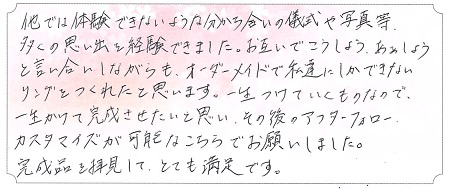 他では体験できないような分かち合いの儀式や写真等、
多くの思い出を経験できました。お互いでこうしよう、ああしよう
と言い合いしながらも、オーダーメイドで私達にしかできない
リングをつくれたと思います。一生つけていくものなので、
一生かけて完成させたいと思い、その後のアフターフォロー、
カスタマイズが可能なこちらでお願いしました。
完成品を拝見して、とても満足です。